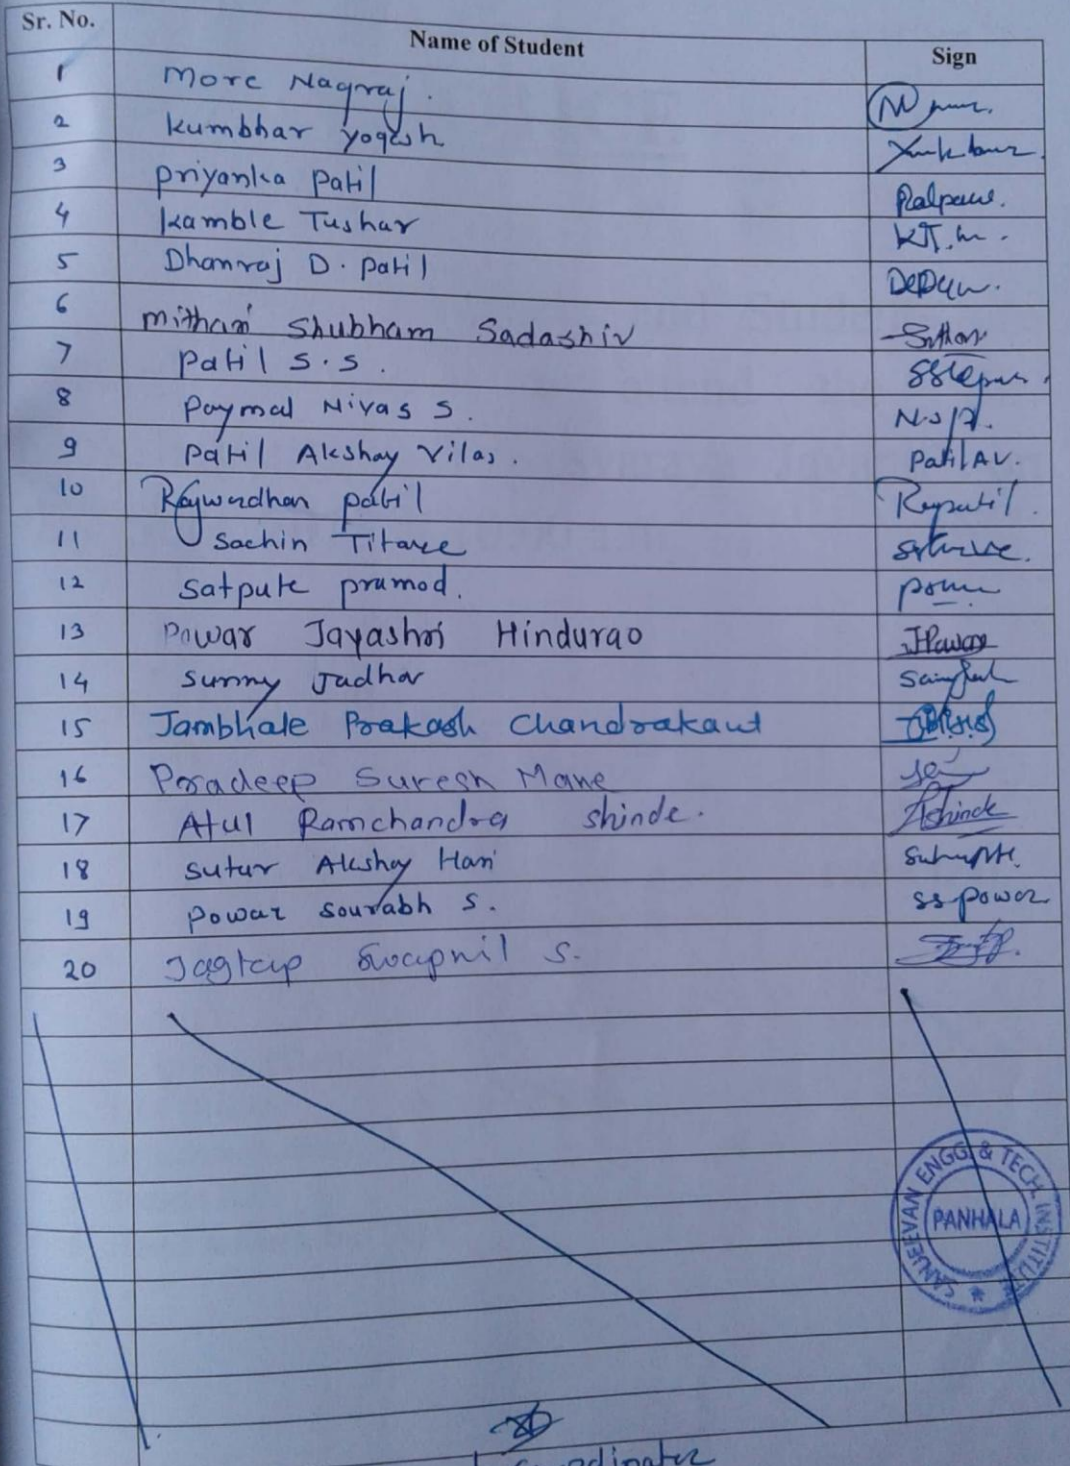 Sr. No. Name of Student Sign
1 More Nagraj.
2 Kumbhar Yogesh
3 Priyanka Patil
4 Kamble Tushar
5 Dhanraj D. Patil
6 Mithari Shubham Sadashiv
7 Patil S.S.
8 Paymal Nivas S. N.S.P.
9 Patil Akshay Vilas. Patil AV.
10 Rajwardhan Patil
11 Sachin Titave
12 Satpute pramod.
13 Powar Jayashri Hindurao JPawar
14 Sunny Jadhav
15 Jambhale Prakash Chandrakant
16 Pradeep Suresh Mane
17 Atul Ramchandra Shinde. AShinde
18 Sutar Akshay Hari
19 Powar Sourabh S. SS Powar
20 Jagtap Swapnil S.
SANJEEVAN ENGG. & TECH. INSTITUTE
PANHALA